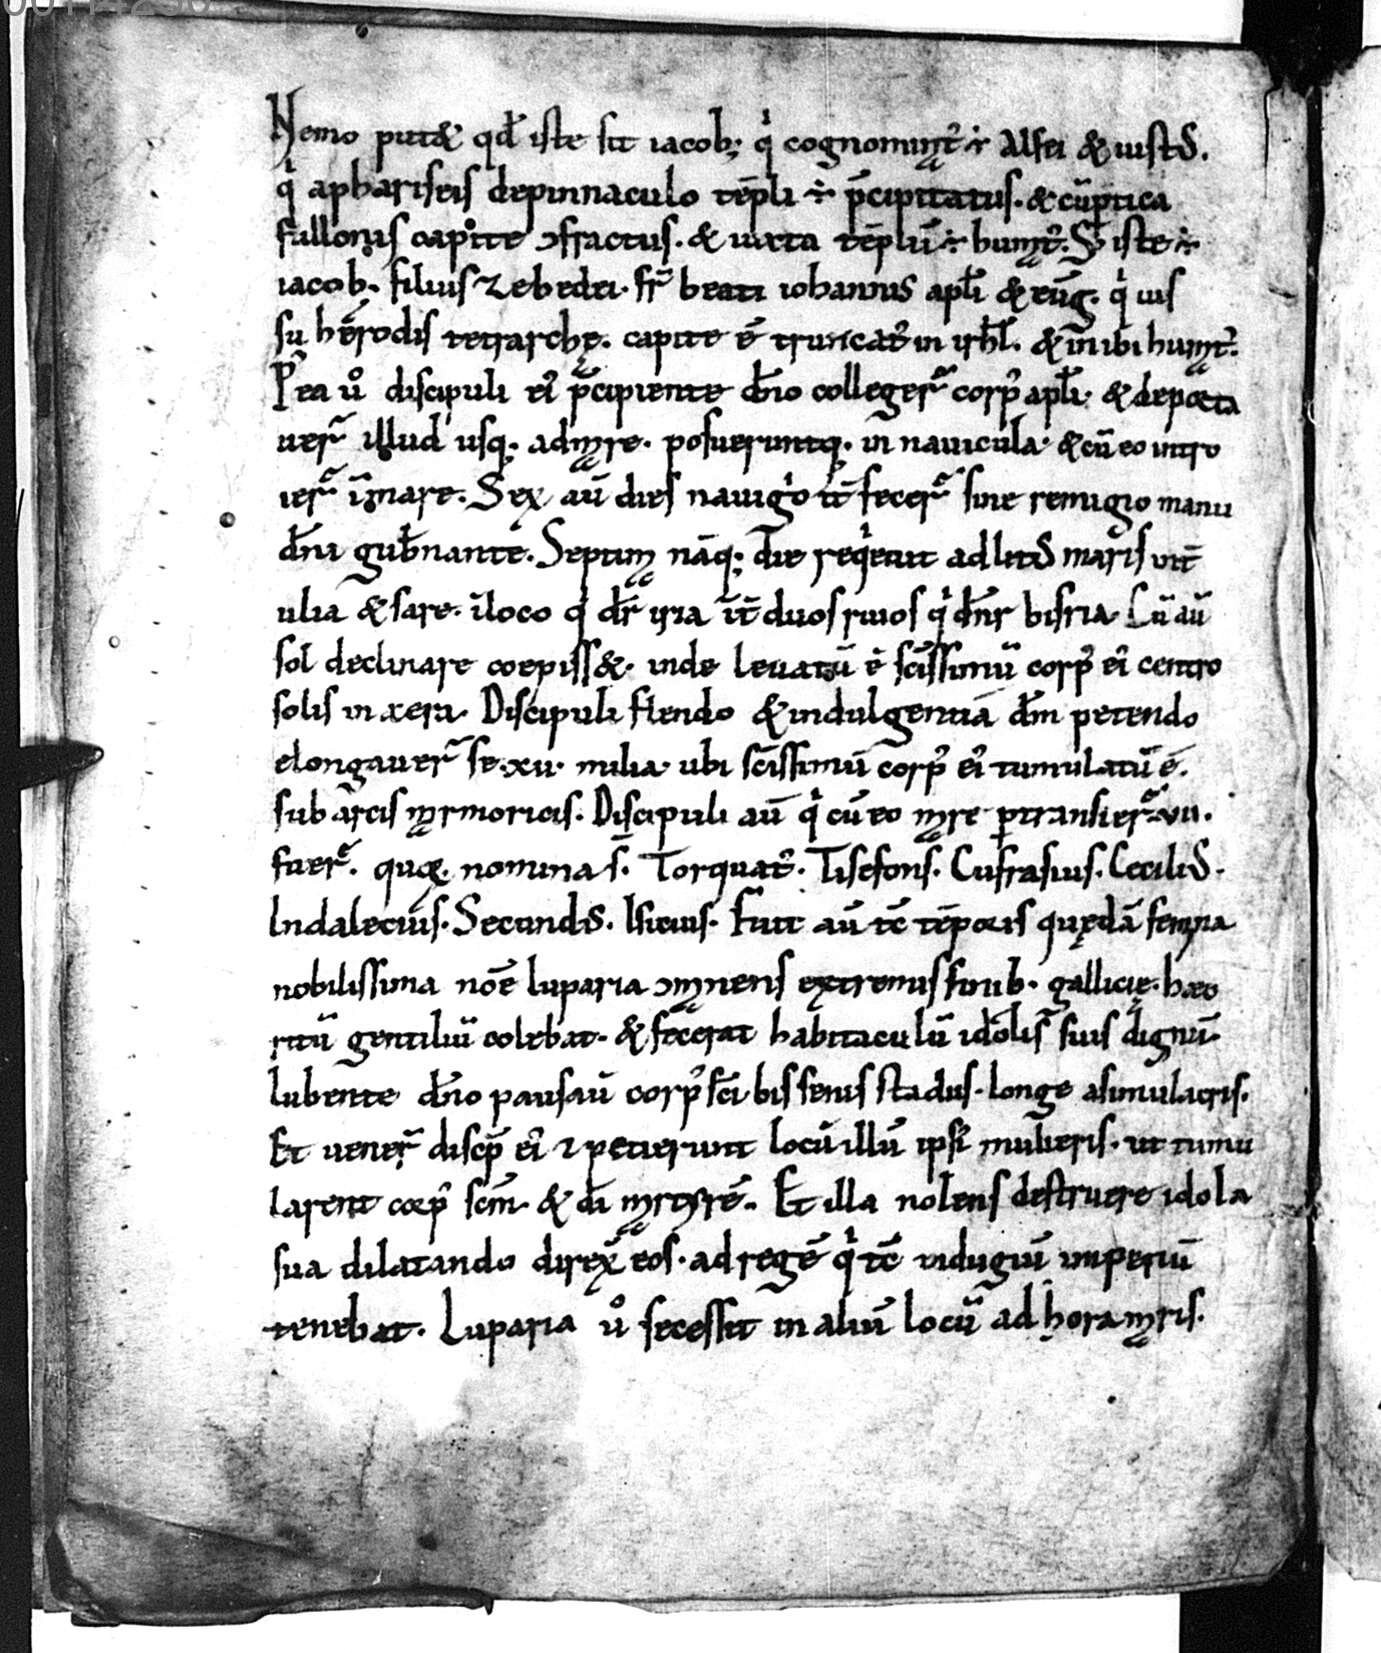 Nemo put& qđ iste sit iacob; q̍ cognominat᷒ ÷ Alfei & iustus.
q̍ aphariseis depinnaculo tēpli ÷ p̄cipitatus. & cū ptica
fullonis capite ɔfractus. & iuxta tēplū ÷ humat᷒. S; iste ÷
iacob. filius zebedei. fr̄ beati iohannis apl̄i & eūg. q̍ ius
su herodis tetrarchę. capite ē truncat᷒ in irhl̄. & inibi humat᷒.
P ea ů discipuli ei᷒ p̄cipiente dn̄o colleger̄ corp᷒ apl̄i. & deporta
uer̄ illud usq; admare. posueruntq; in nauicula. & cū eo intro
ier̄ ī mare. Sex aū dies nauigio it̄ fecer̄ sine remigio manu
dn̄i gub̄nante. Septima nāq; die reqeuit ad litus maris int̄
ulia & sare. ī loco q̍ dr̄ iria īt̄ duos riuos q̍ dn̄r bisria. Cū aū
sol declinare coepiss&. inde leuatū ē sc̄issimū corp᷒ ei᷒ centro
solis in aera. Discipuli flendo & indulgentiā dm̄ petendo
elongauer̄ se. xii. milia. ubi sc̄issimū corp᷒ ei᷒ tumulatū ē.
sub arcis marmoricis. Discipuli aū q̍ cū eo mare ptransier̄ .vii.
fuer̄. quoꝝ nomina s̄. Torquat᷒. Tisefons. Eufrasius. Cecilius.
Indalecius. Secundus. Isicius. Fuit aū tc̄ tēporis quędā femina
nobilissima noē luparia ɔmanens extremis finib. gallicie. haec
ritū gentiliū colebat. & fecerat habitaculū idolis suis dignū.
Iubente dn̄o pausaū corp᷒ sc̄i bis senis stadiis. longe asimulacris.
Et uener̄ discip̄ ei᷒ & petierunt locū illū ipsi᷒ mulieris. ut tumu
larent corp᷒ scm̄. & di martyrē. Et illa nolens destruere idola
sua dilatando direx̄ eos. ad regē q̍ tc̄ indugiū imperiū
tenebat. Luparia ů secessit in aliū locū ad hora maris.